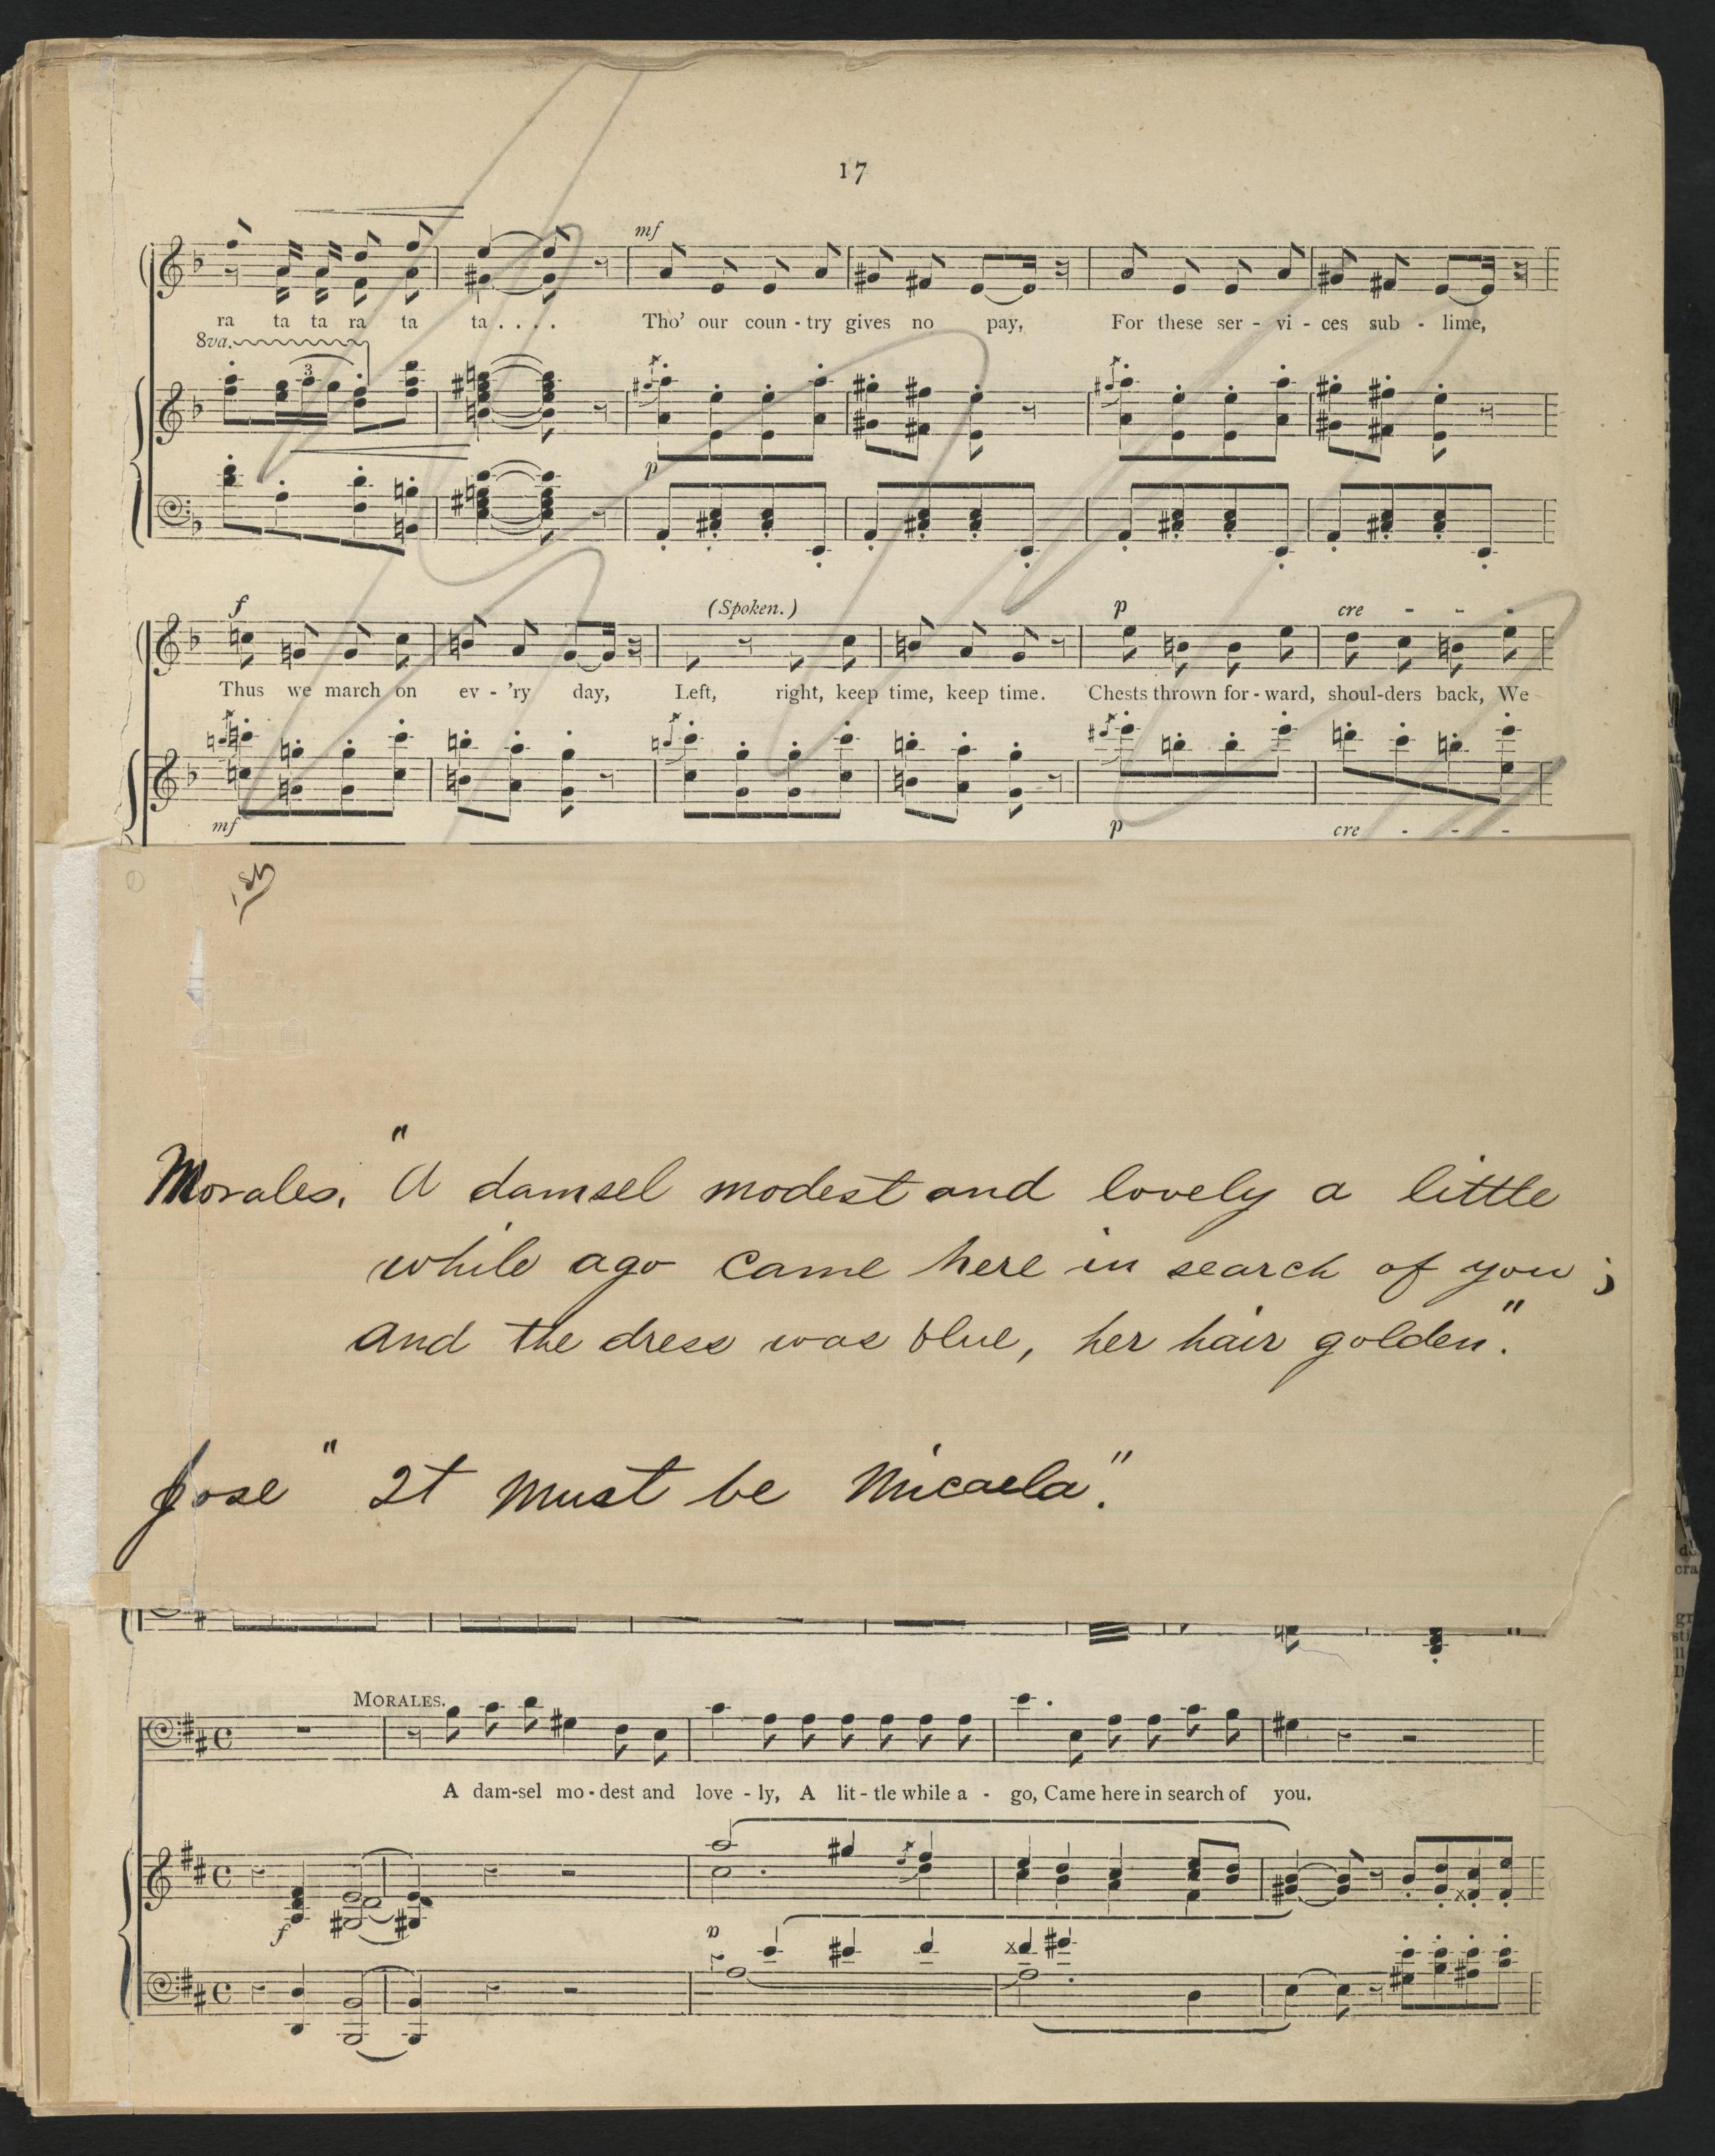 17
mf
ra ta ta ra ta ta . . . . Tho' our coun - try gives no pay, For these ser - vi - ces sub - lime,
8va.
3
p
f (Spoken.) p cre - - -
Thus we march on ev - 'ry day, Left, right, keep time, keep time. Chests thrown for - ward, shoul-ders back, We
mf p cre - - -
Morales. "A damsel modest and lovely a little
while ago came here in search of you;
and the dress was blue, her hair golden."
Jose "It must be Micaela."
MORALES.
A dam-sel mo - dest and love - ly, A lit - tle while a - go, Came here in search of you.
f p